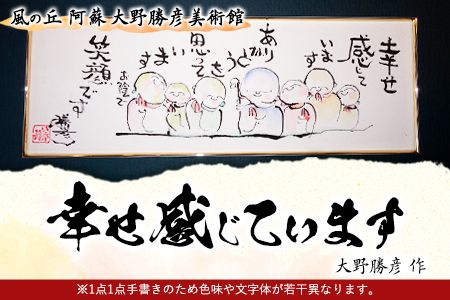 風の丘 阿蘇 大野勝彦美術館
幸せ
感じて
います
あり
がとう
思って
います
お陰で
笑顔です
幸せ感じています
大野勝彦 作
※1点1点手書きのため色味や文字体が若干異なります。